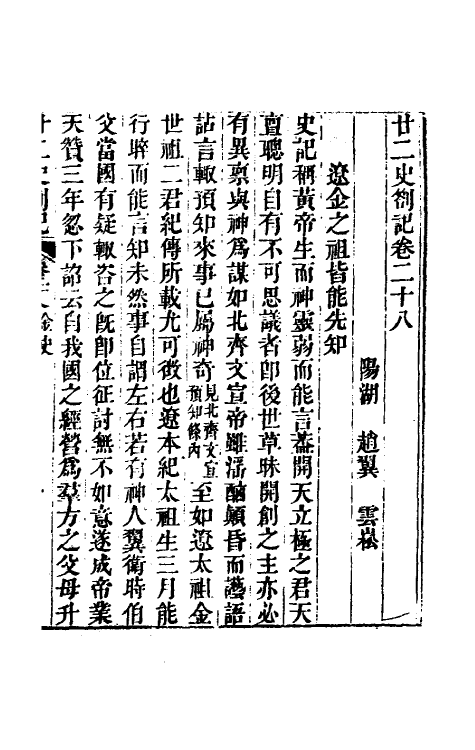 廿二史劄記卷二十八
陽湖 趙翼 雲崧
遼金之祖皆能先知
史記稱黃帝生而神靈弱而能言蓋開天立極之君天
亶聰明自有不可思議者卽後世草昧開創之主亦必
有異稟與神爲謀如北齊文宣帝雖滛酗顛昏而囈語
詀言輒預知來事已屬神奇見北齊文宣預知條內至如遼太祖金
世祖二君紀傳所載尤可徵也遼本紀太祖生三月能
行晬而能言知未然事自謂左右若有神人翼衛時伯
父當國有疑輒咨之旣卽位征討無不如意遂成帝業
天贊三年忽下詔云自我國之經營爲羣方之父母升
廿二史劄記